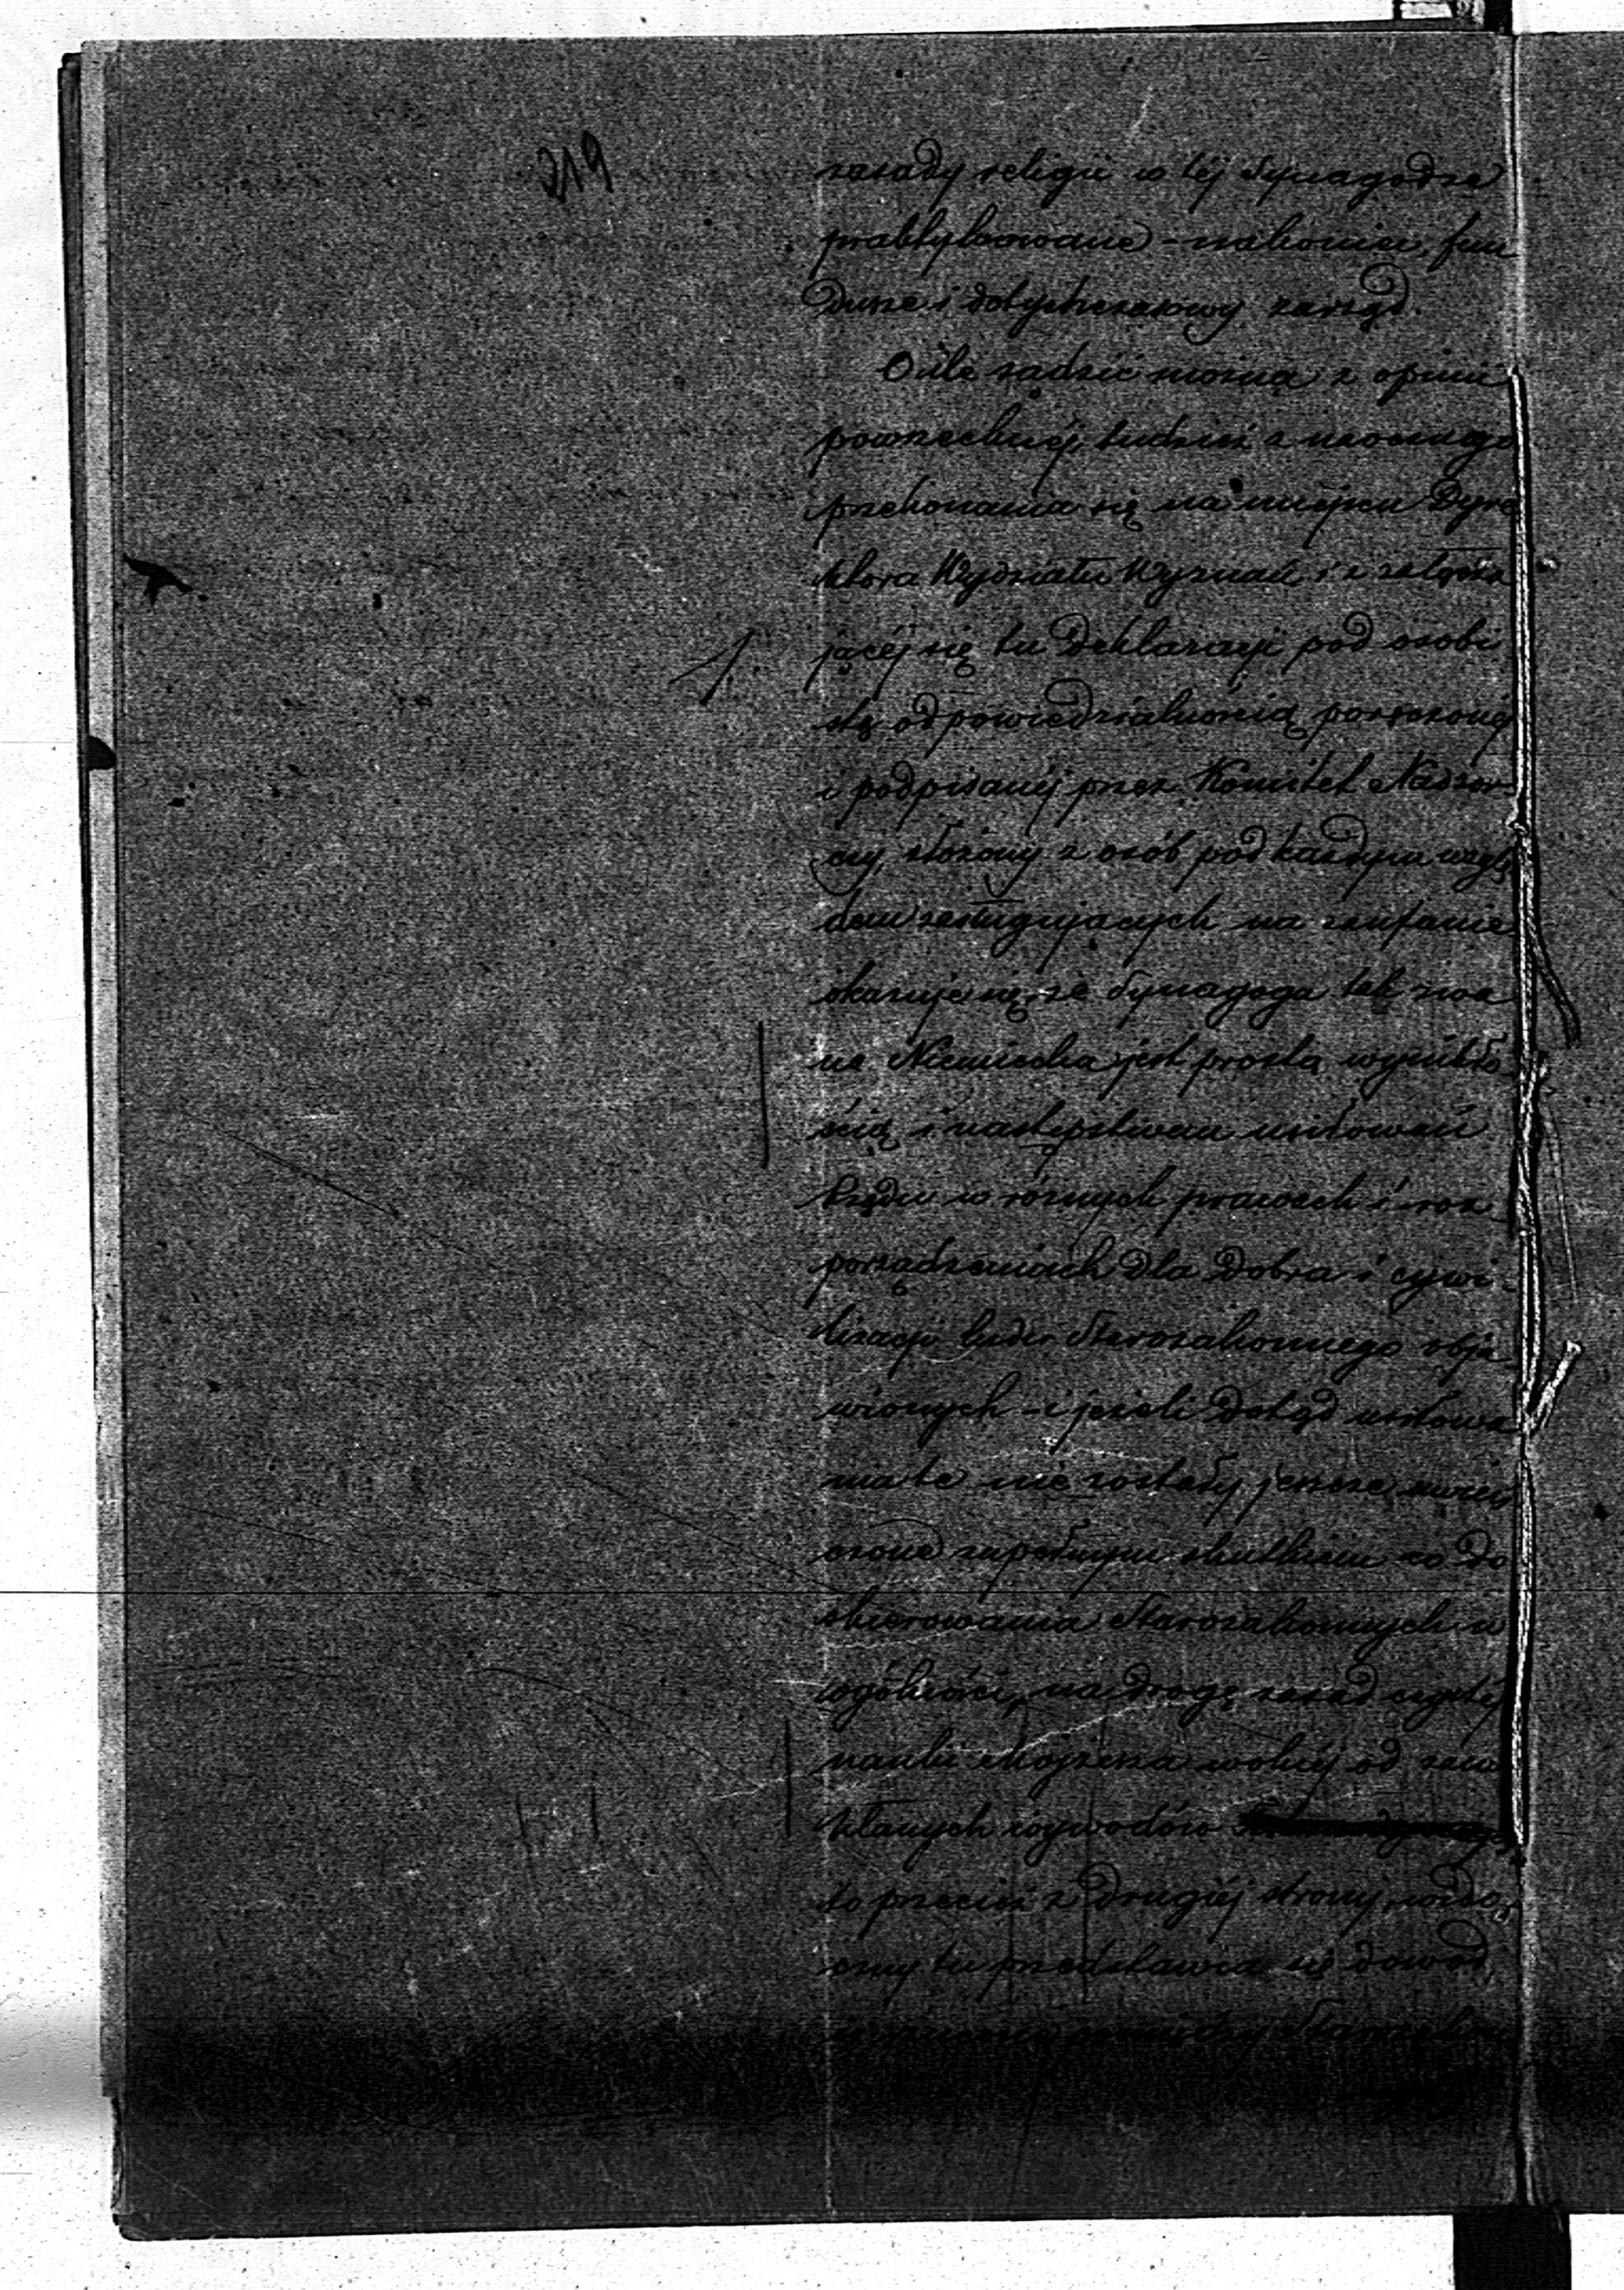 219
zasady religii w téj Synagodze
praktykowane - nakoniec, fun
dusze i dotychczasowy zarząd.
O ile sądzić można z opinii
powszechnéj, tudzież z naocznego
przekonania się na miejscu Dyre
ktora Wydziału Wyznań i z załącza
jącéj się tu deklaracji pod osobi
stą odpowiedzialnością poręczonéj
i podpisanéj przez Komitet Nadzor
czy, złożony z osób pod każdym wzglę
dem zasługujących na zaufanie
okazuje się, że Synagoga tak zwa
na Niemiecka jest prostą wynikło
ścią i następstwem usiłowań
Rządu w różnych prawach i roz
porządzeniach dla dobra i cywi
lizacji ludu Starozakonnego obja
wionych - i jeżeli dotąd usiłowa
nia te nie zostały jeszcze uwień
czone zupełnym skutkiem co do
skierowania Starozakonnych w
ogólności, na drogę zasad czystéj
nauki Mojżesza wolnéj od zawi
kłanych wywodów
to przecież z drugiéj strony, wido
czny tu przedstawia się dowód,